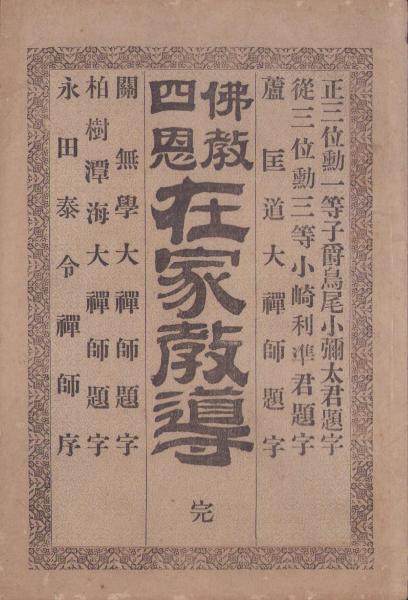 正三位勳一等子爵鳥尾小彌太君題字
從三位勳三等小崎利準君題字
蘆匡道大禪師題字
佛教
四恩
在家教導
完
關無學大禪師題字
柏樹潭海大禪師題字
永田泰令禪師序